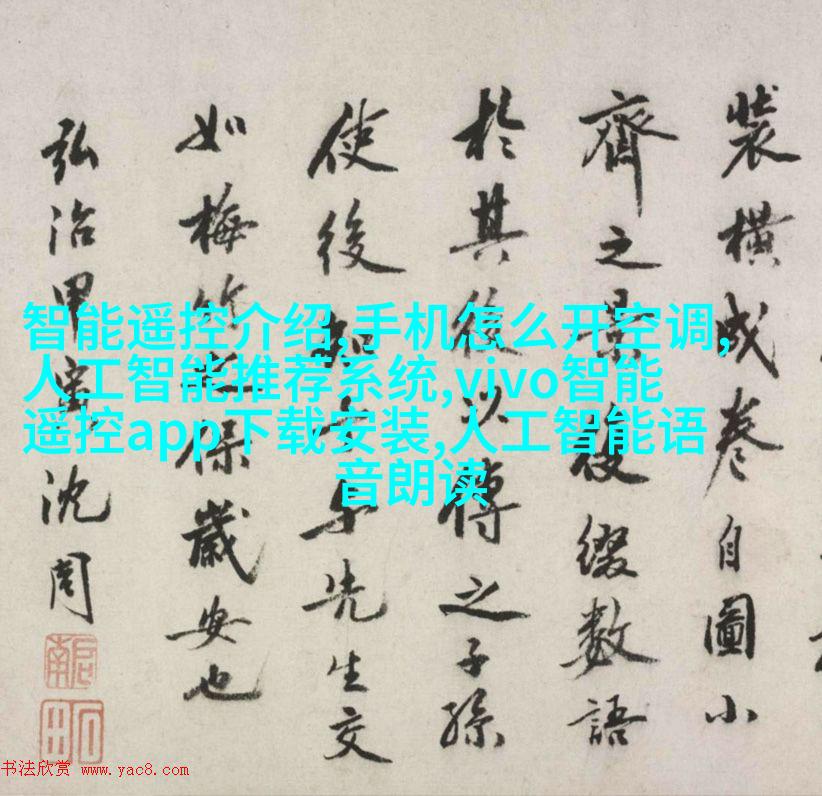 裝橫成卷自圖小
齋之景後綴數語
於其後以傳之子孫
使後知余与先生交
如梅竹保歲安也
弘治甲寅沈周
啓南
石田
智能遥控介绍,手机怎么开空调,
人工智能推荐系统,vivo智能
遥控app下载安装,人工智能语
音朗读
书法欣赏 www.yac8.com